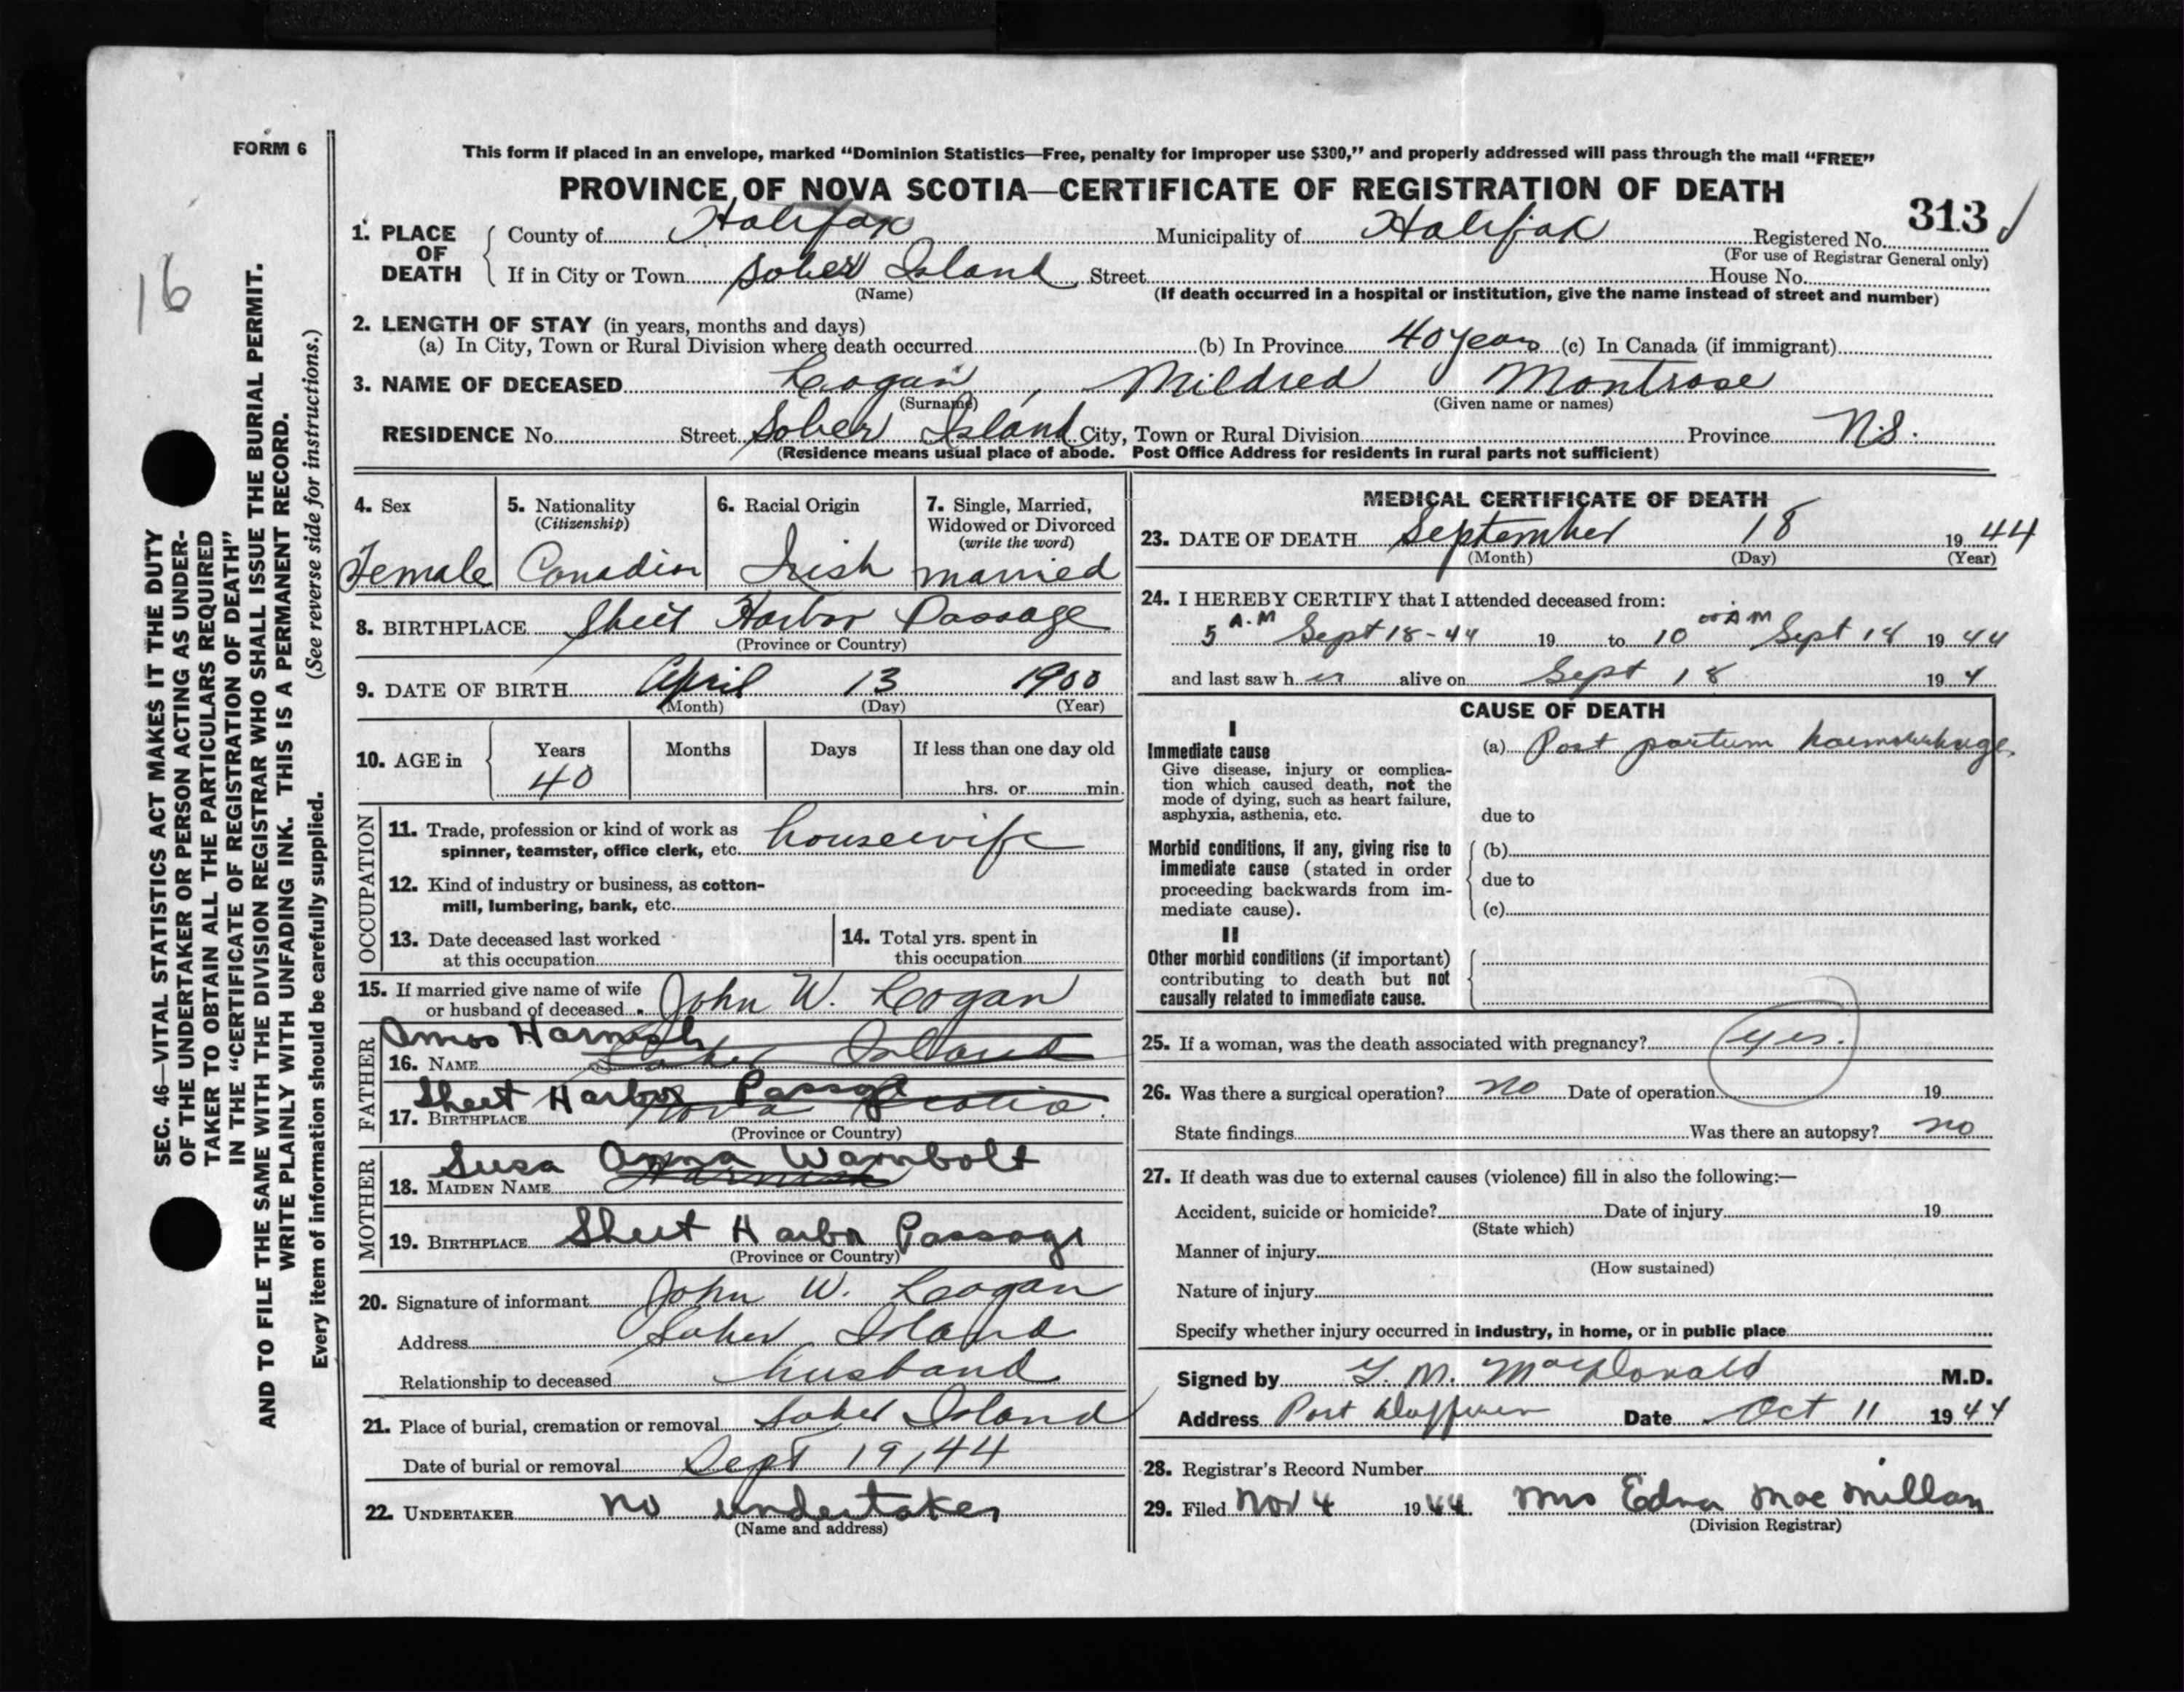 FORM 6
This form if placed in an envelope, marked “Dominion Statistics—Free, penalty for improper use $300,” and properly addressed will pass through the mail “FREE”
PROVINCE OF NOVA SCOTIA—CERTIFICATE OF REGISTRATION OF DEATH
313
16
1. PLACE OF DEATH
County of Halifax Municipality of Halifax Registered No.
(For use of Registrar General only)
If in City or Town Sober Island Street House No.
(Name) (If death occurred in a hospital or institution, give the name instead of street and number)
2. LENGTH OF STAY (in years, months and days)
(a) In City, Town or Rural Division where death occurred (b) In Province 40 years (c) In Canada (if immigrant)
3. NAME OF DECEASED Logan, Mildred Montrose
(Surname) (Given name or names)
RESIDENCE No. Street Sober Island City, Town or Rural Division Province N.S.
(Residence means usual place of abode. Post Office Address for residents in rural parts not sufficient)
4. Sex
Female
5. Nationality
(Citizenship)
Canadian
6. Racial Origin
Irish
7. Single, Married,
Widowed or Divorced
(write the word)
married
8. BIRTHPLACE Sheet Harbor Passage
(Province or Country)
9. DATE OF BIRTH April 13 1900
(Month) (Day) (Year)
10. AGE in Years Months Days If less than one day old
40 hrs. or min.
OCCUPATION
11. Trade, profession or kind of work as
spinner, teamster, office clerk, etc. housewife
12. Kind of industry or business, as cotton-
mill, lumbering, bank, etc.
13. Date deceased last worked
at this occupation
14. Total yrs. spent in
this occupation
15. If married give name of wife
or husband of deceased John W. Logan
FATHER
Amos Harnish
16. NAME Sober Island
Sheet Harbor Passage
17. BIRTHPLACE Nova Scotia
(Province or Country)
MOTHER
Susa Anna Wambolt
18. MAIDEN NAME Harnish
19. BIRTHPLACE Sheet Harbor Passage
(Province or Country)
20. Signature of informant John W. Logan
Address Sober Island
Relationship to deceased husband
21. Place of burial, cremation or removal Sober Island
Date of burial or removal Sept 19, 44
22. UNDERTAKER no undertaker
(Name and address)
MEDICAL CERTIFICATE OF DEATH
23. DATE OF DEATH September 18 1944
(Month) (Day) (Year)
24. I HEREBY CERTIFY that I attended deceased from:
5 A.M Sept 18-44 19 to 10 00 AM Sept 18 1944
and last saw her alive on Sept 18 194
CAUSE OF DEATH
I
Immediate cause
Give disease, injury or complica-
tion which caused death, not the
mode of dying, such as heart failure,
asphyxia, asthenia, etc.
(a) Post partum haemorrhage
due to
Morbid conditions, if any, giving rise to
immediate cause (stated in order
proceeding backwards from im-
mediate cause).
(b)
due to
(c)
II
Other morbid conditions (if important)
contributing to death but not
causally related to immediate cause.
25. If a woman, was the death associated with pregnancy? Yes.
26. Was there a surgical operation? no Date of operation 19
State findings Was there an autopsy? no
27. If death was due to external causes (violence) fill in also the following:—
Accident, suicide or homicide? Date of injury 19
(State which)
Manner of injury
(How sustained)
Nature of injury
Specify whether injury occurred in industry, in home, or in public place
Signed by M. MacDonald M.D.
Address Port Dufferin Date Oct 11 1944
28. Registrar's Record Number
29. Filed Nov 4 1944 Mrs Edna MacMillan
(Division Registrar)
SEC. 46—VITAL STATISTICS ACT MAKES IT THE DUTY
OF THE UNDERTAKER OR PERSON ACTING AS UNDER-
TAKER TO OBTAIN ALL THE PARTICULARS REQUIRED
IN THE “CERTIFICATE OF REGISTRATION OF DEATH”
AND TO FILE THE SAME WITH THE DIVISION REGISTRAR WHO SHALL ISSUE THE BURIAL PERMIT.
WRITE PLAINLY WITH UNFADING INK. THIS IS A PERMANENT RECORD.
Every item of information should be carefully supplied. (See reverse side for instructions.)